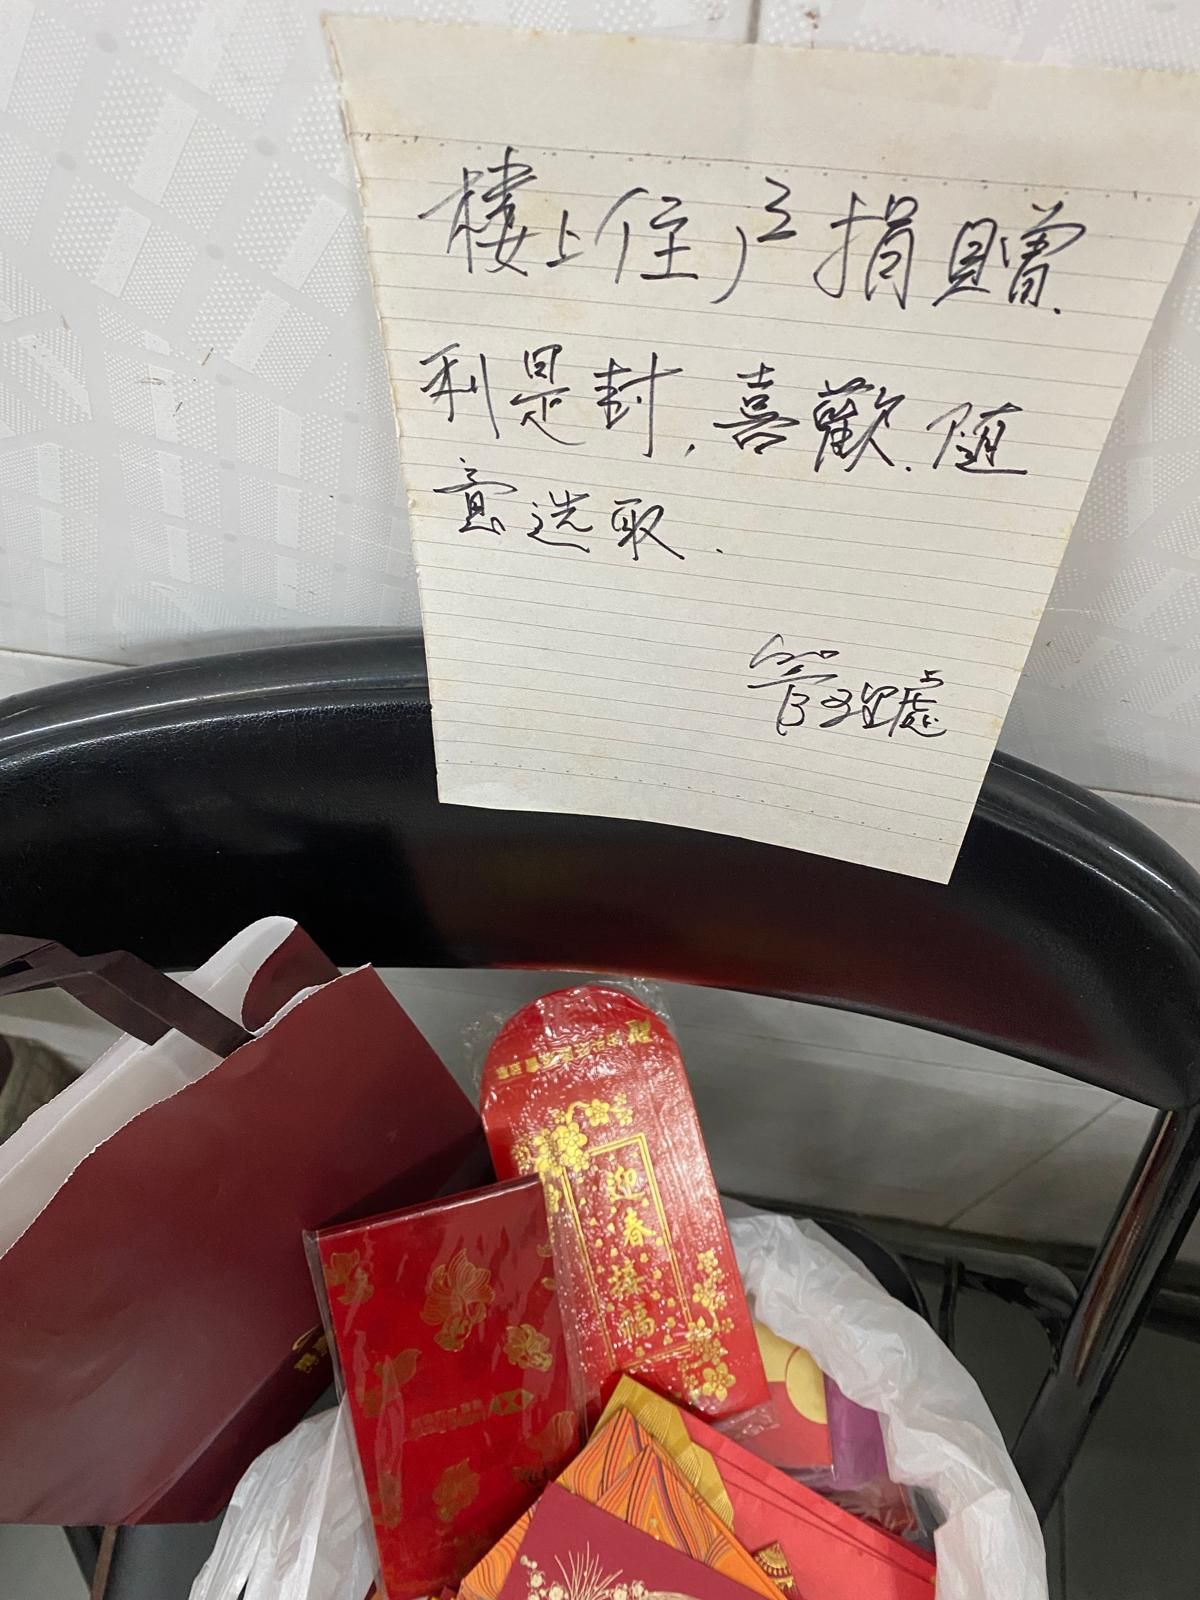 樓上住户捐贈.
利是封,喜歡.随
意选取.
管理處
迎春接福